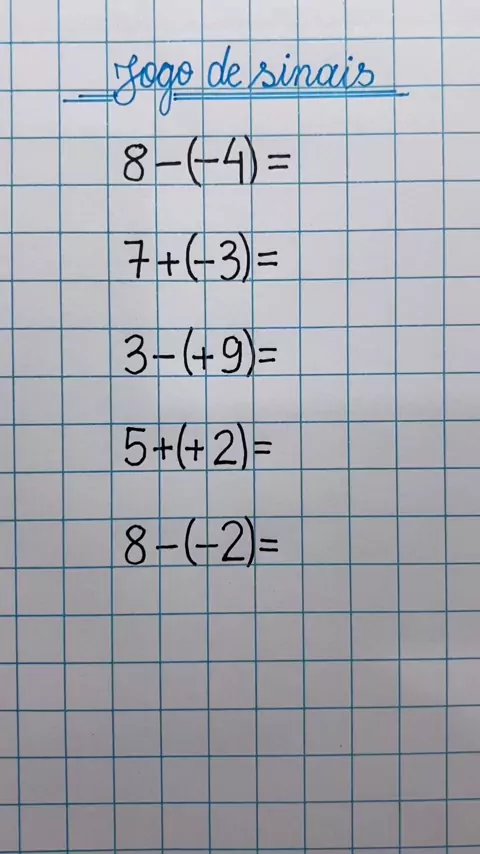 Jogo de sinais
8-(-4)=
7+(-3)=
3-(+9)=
5+(+2)=
8-(-2)=